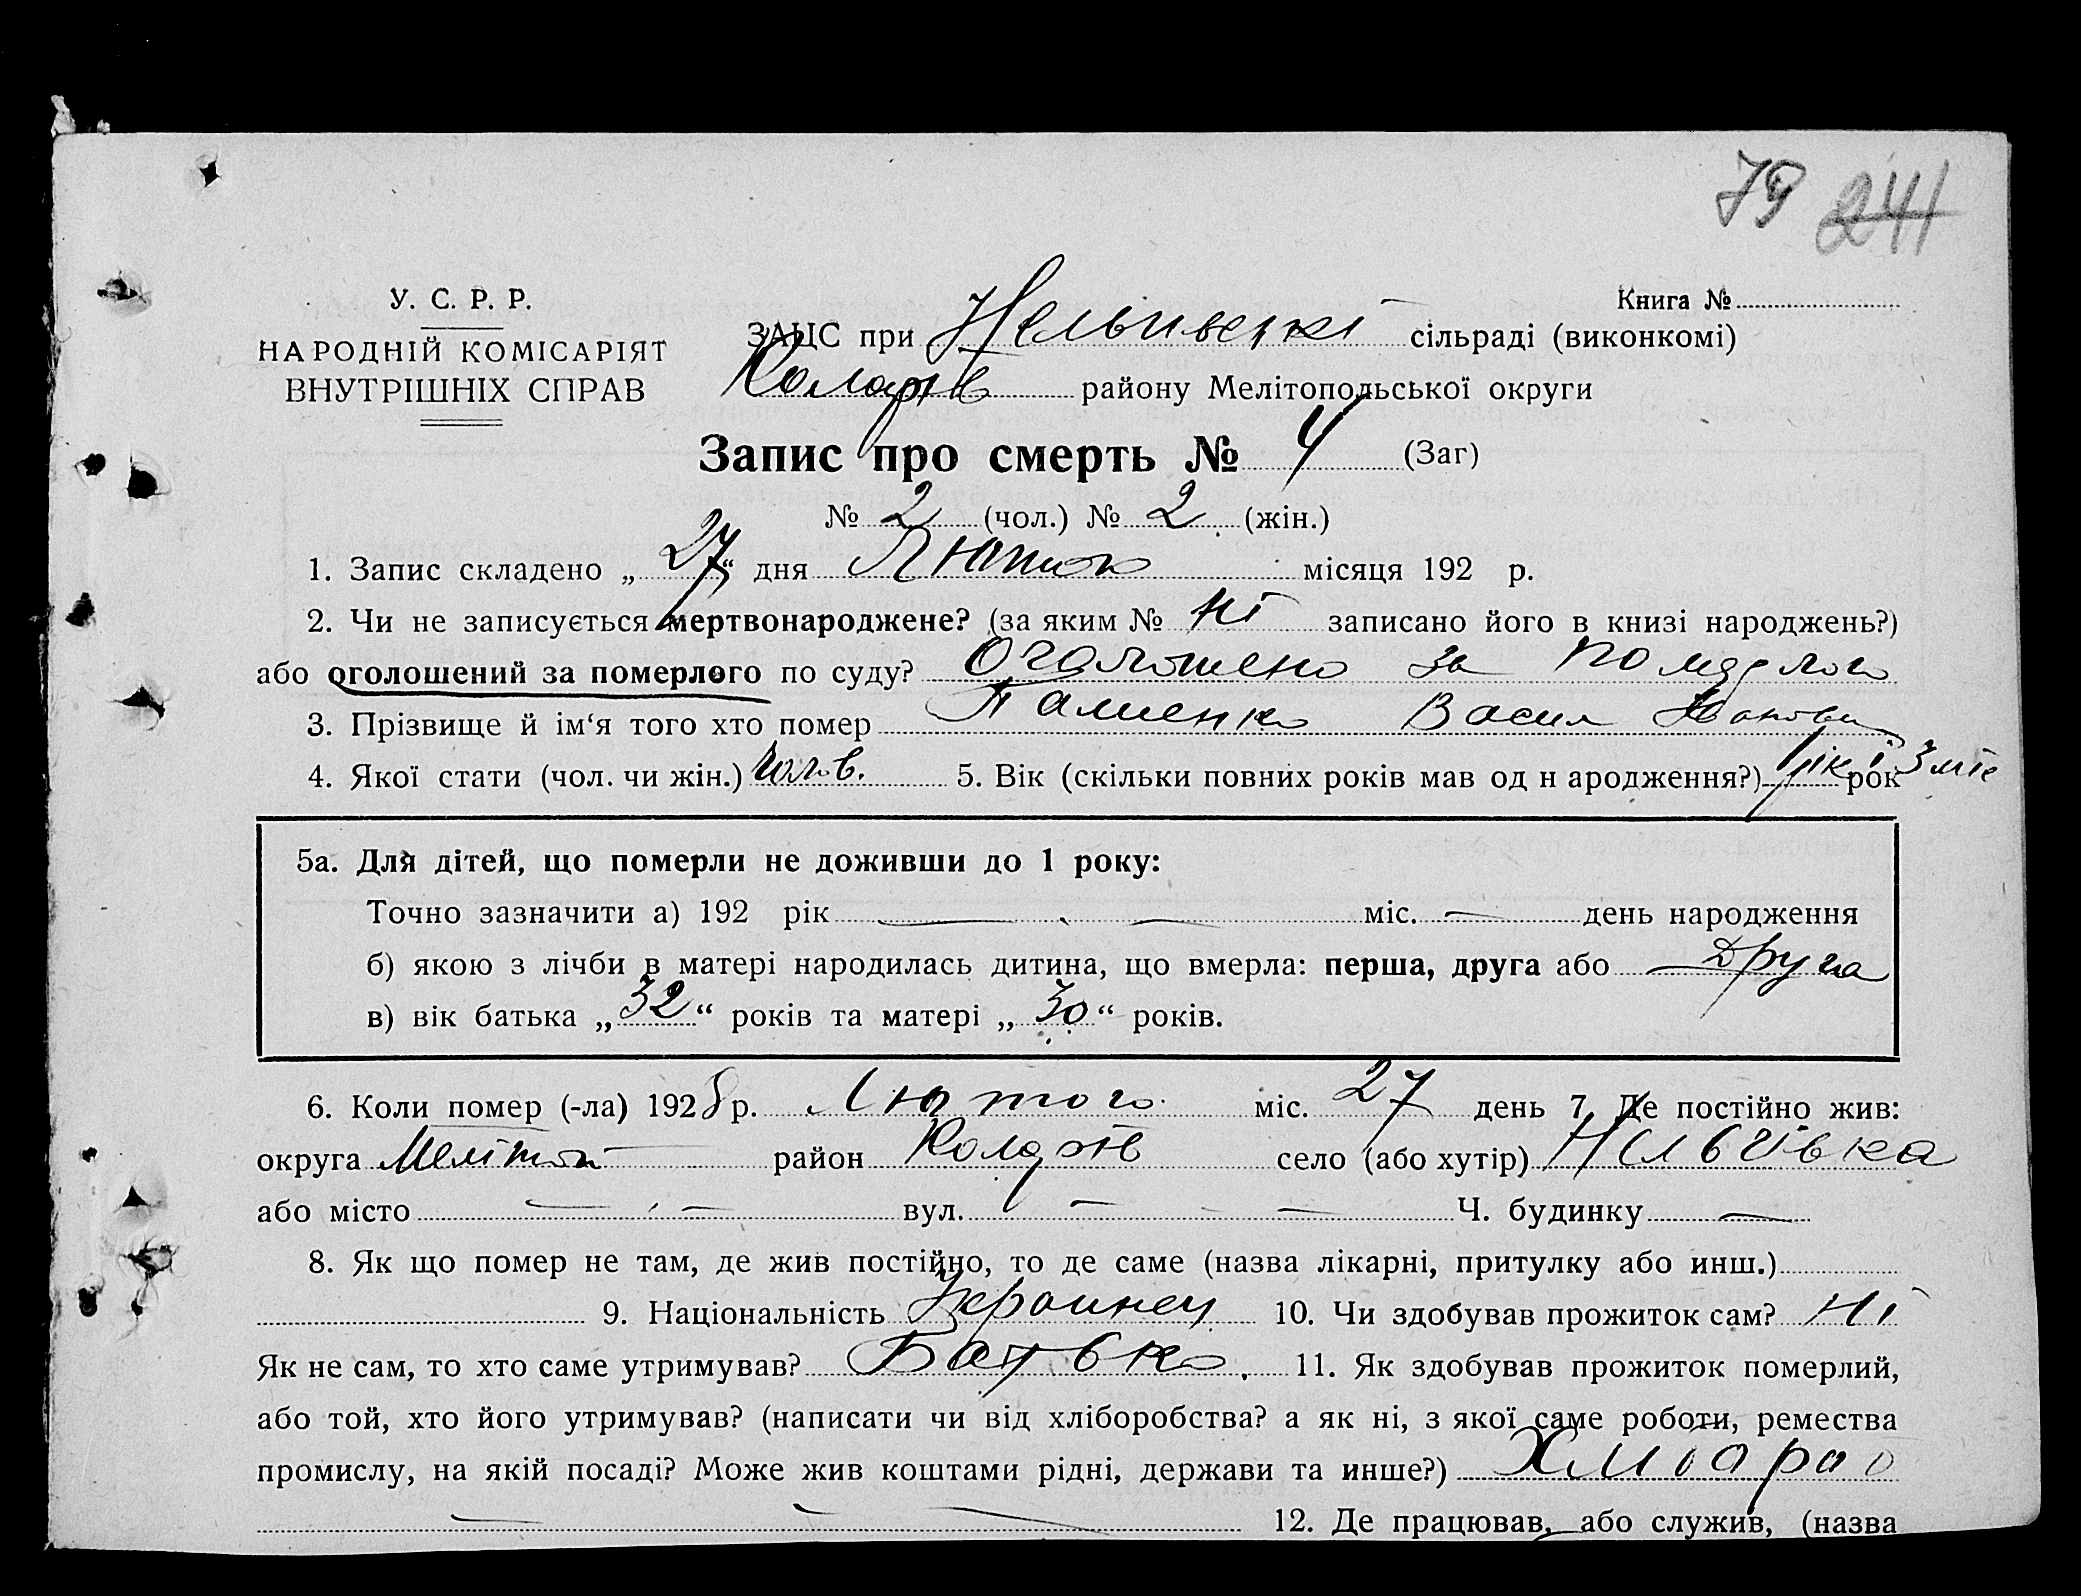 79 241
У. С. Р. Р.
НАРОДНІЙ КОМІСАРІЯТ
ВНУТРІШНІХ СПРАВ
Книга №
ЗАЦС при Нельгівській сільраді (виконкомі)
Коларів району Мелітопольської округи
Запис про смерть № 4 (Заг)
№ 2 (чол.) № 2 (жін.)
1. Запис складено „ 27 “ дня Лютого місяця 192 р.
2. Чи не записується мертвонароджене? (за яким № Ні записано його в книзі народжень?)
або оголошений за померлого по суду? Оголошено за Померлого
3. Прізвище й ім‘я того хто помер Василь
4. Якої стати (чол. чи жін.) Чолов. 5. Вік (скільки повних років мав од н ародження?) 1 рік і 3 міс рок
5а. Для дітей, що померли не доживши до 1 року:
Точно зазначити а) 192 рік — — міс. — день народження
б) якою з лічби в матері народилась дитина, що вмерла: перша, друга або — Друга
в) вік батька „ 32 “ років та матері „ 30 “ років.
6. Коли помер (-ла) 1928 р. Лютого міс. 27 день 7. Де постійно жив:
округа Мелітоп район Коларів село (або хутір) Нельгівка
або місто — — вул. — — Ч. будинку —
8. Як що помер не там, де жив постійно, то де саме (назва лікарні, притулку або инш.)
9. Національність Украинец 10. Чи здобував прожиток сам? Ні
Як не сам, то хто саме утримував? Батько 11. Як здобував прожиток померлий,
або той, хто його утримував? (написати чи від хліборобства? а як ні, з якої саме роботи, ремества
промислу, на якій посаді? Може жив коштами рідні, держави та инше?)
— — 12. Де працював, або служив, (назва